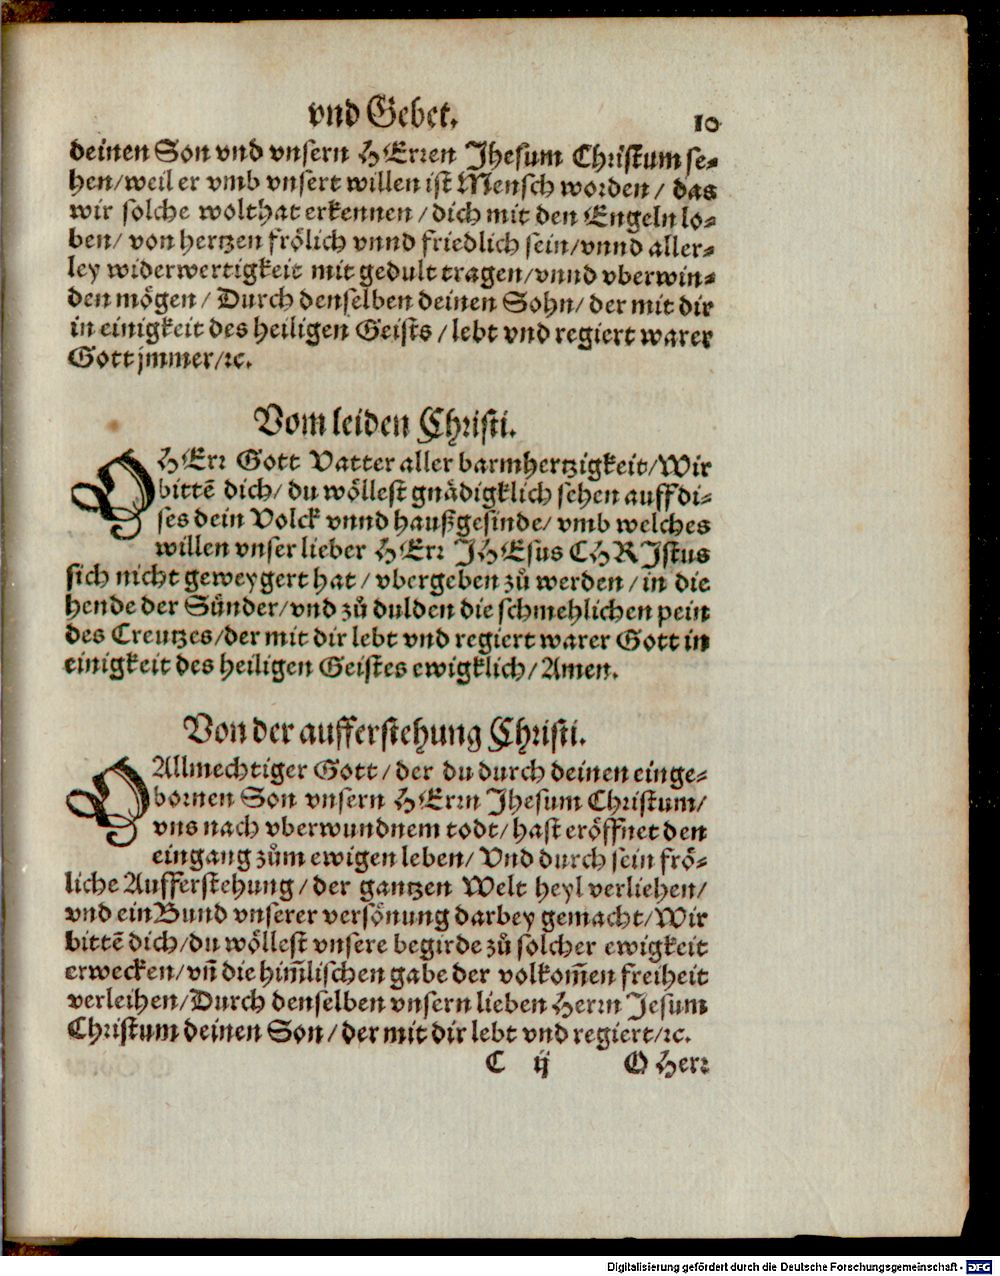 vnd Gebet. 10
deinen Son vnd vnsern HErren Jhesum Christum se-
hen/weil er vmb vnsert willen ist Mensch worden / das
wir solche wolthat erkennen / dich mit den Engeln lo-
ben/ von hertzen frölich vnnd friedlich sein/vnnd aller-
ley widerwertigkeit mit gedult tragen/vnnd vberwin-
den mögen / Durch denselben deinen Sohn/ der mit dir
in einigkeit des heiligen Geists / lebt vnd regiert warer
Gott jmmer/ꝛc.
Vom leiden Christi.
O HErr Gott Vatter aller barmhertzigkeit/Wir
bittē dich/ du wöllest gnädigklich sehen auff di-
ses dein Volck vnnd haußgesinde/ vmb welches
willen vnser lieber HErr JHEsus CHRJstus
sich nicht geweygert hat / vbergeben zů werden / in die
hende der Sünder/vnd zů dulden die schmehlichen pein
des Creutzes/der mit dir lebt vnd regiert warer Gott in
einigkeit des heiligen Geistes ewigklich/ Amen.
Von der aufferstehung Christi.
O Allmechtiger Gott / der du durch deinen einge-
bornen Son vnsern HErrn Jhesum Christum/
vns nach vberwundnem todt/ hast eröffnet den
eingang zům ewigen leben/ Vnd durch sein frö-
liche Aufferstehung / der gantzen Welt heyl verliehen/
vnd ein Bund vnserer versönung darbey gemacht/ Wir
bittē dich/du wöllest vnsere begirde zů solcher ewigkeit
erwecken/vn̄ die him̄lischen gabe der volkom̄en freiheit
verleihen/Durch denselben vnsern lieben Herrn Jesum
Christum deinen Son / der mit dir lebt vnd regiert/ꝛc.
C ij O Herr
Digitalisierung gefördert durch die Deutsche Forschungsgemeinschaft - DFG